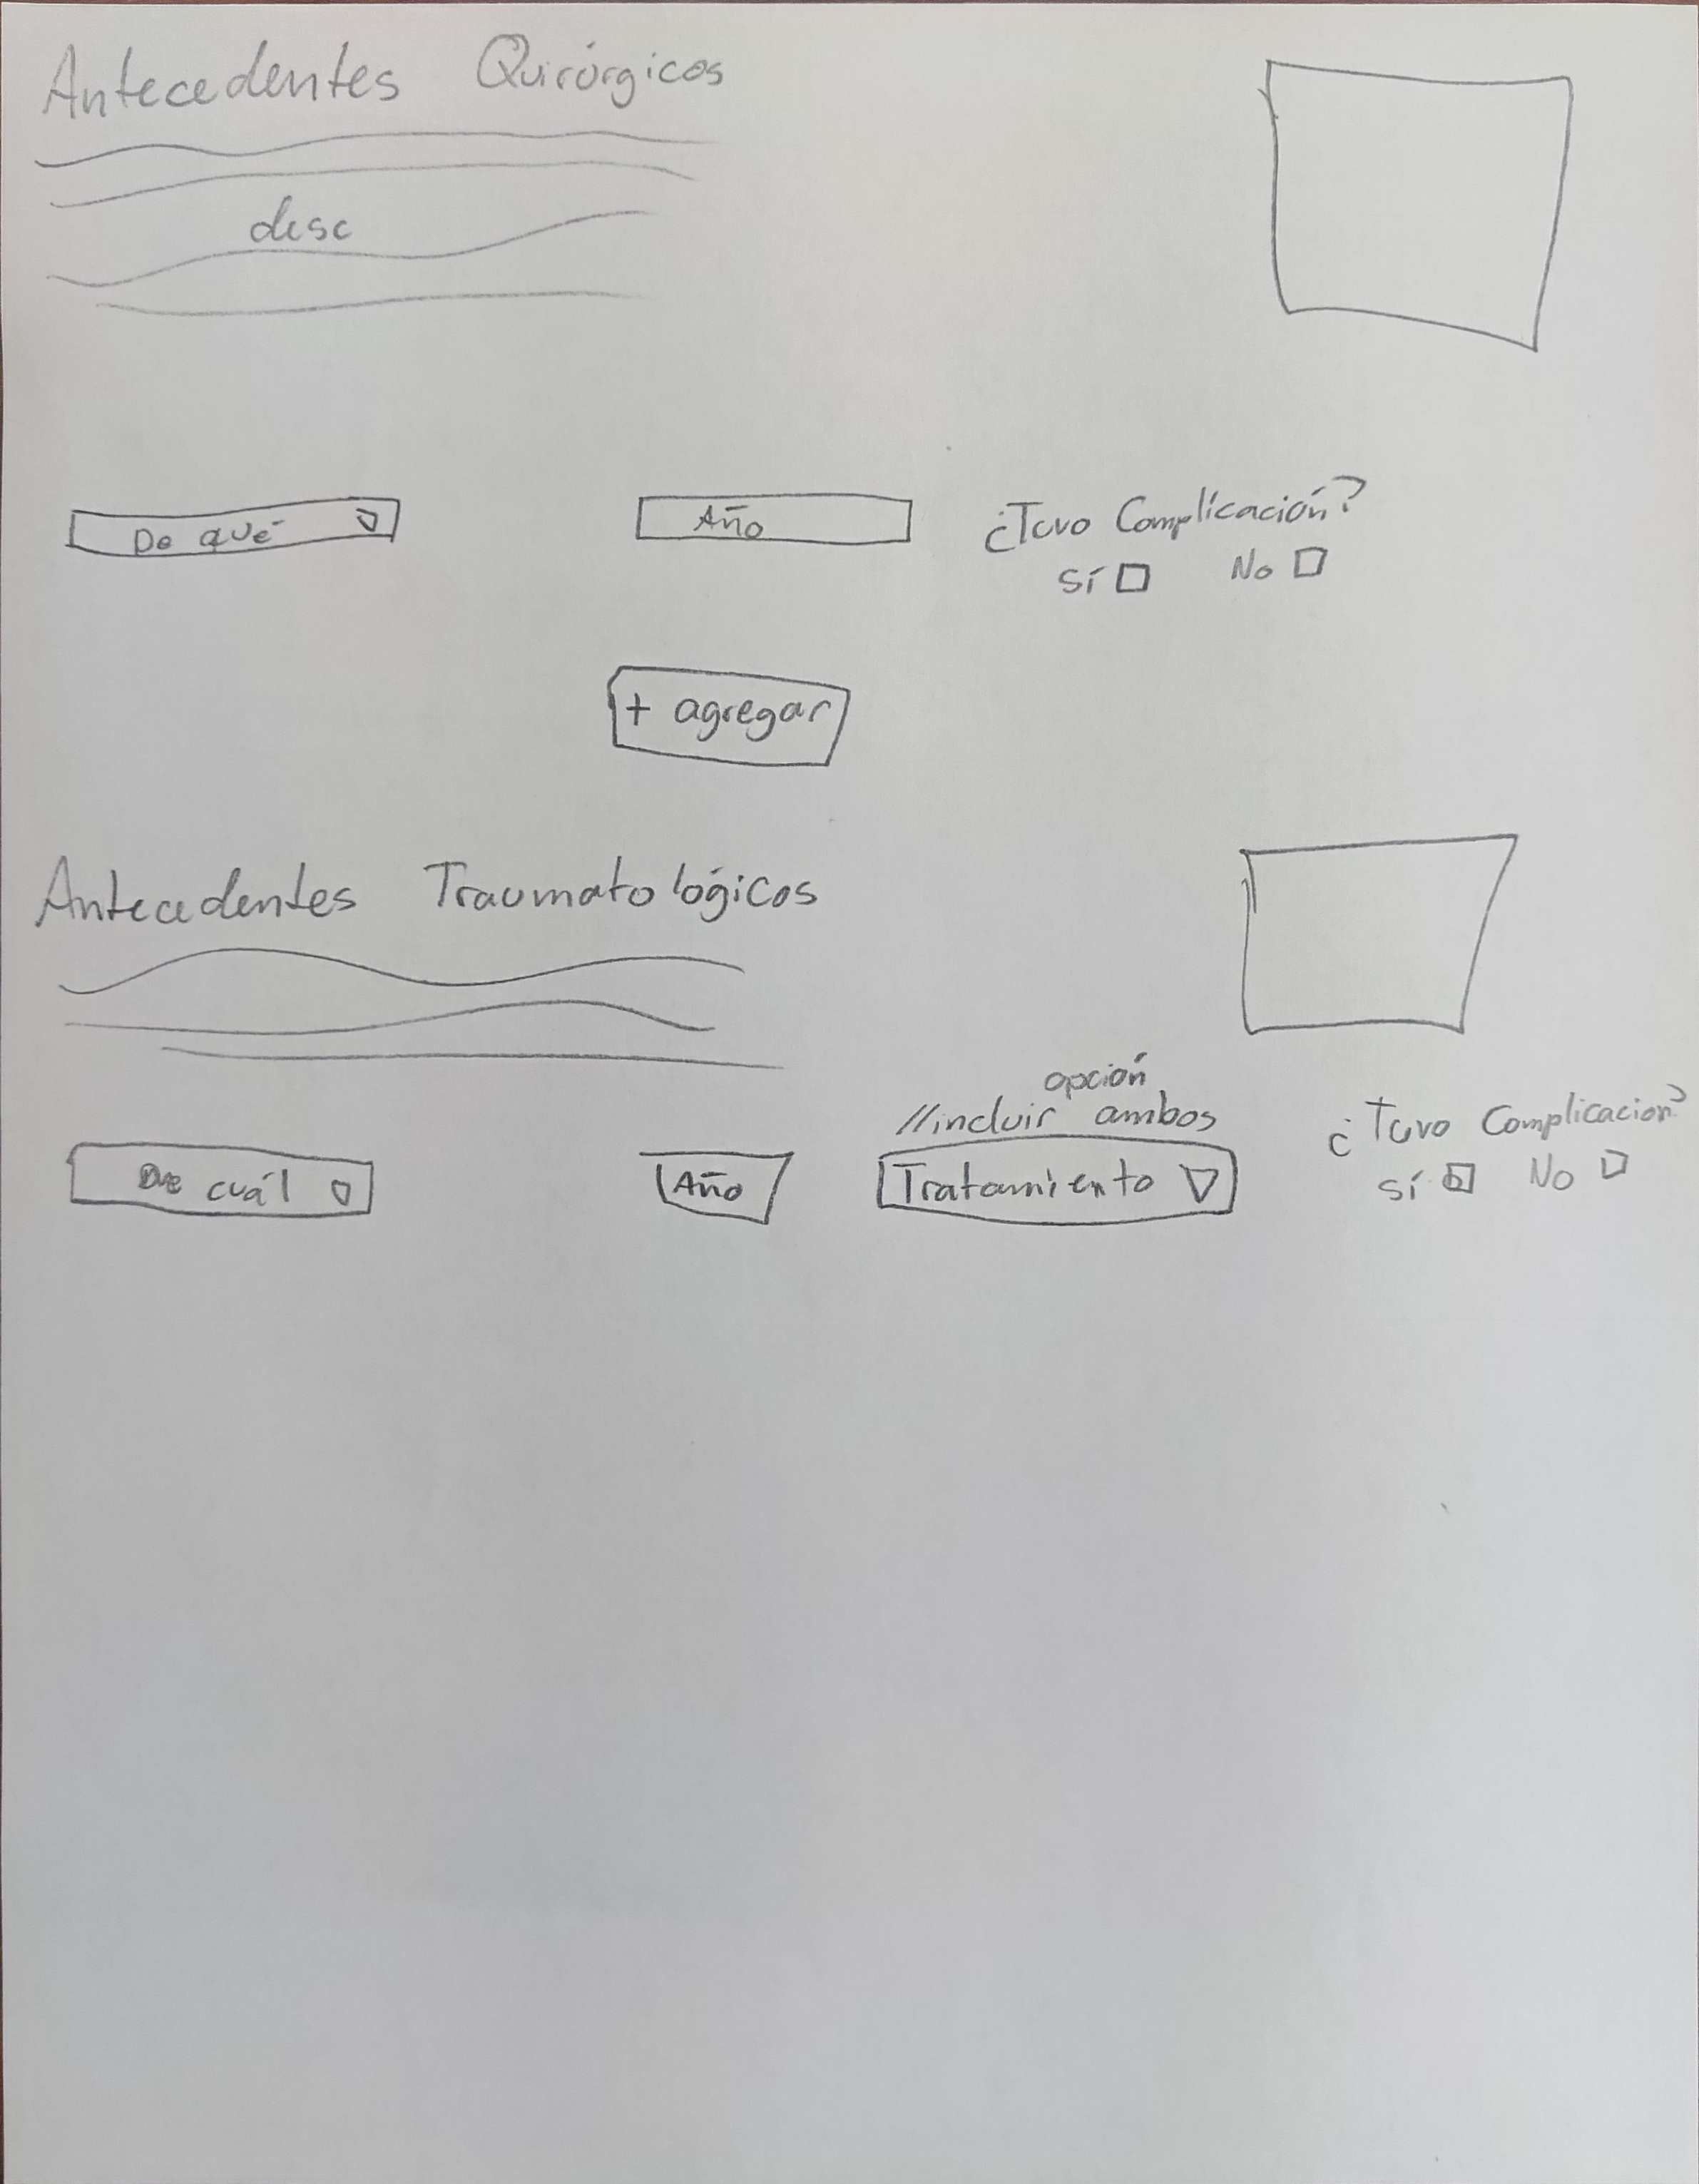 Antecedentes Quirúrgicos
desc
De qué
Año
¿Tuvo Complicación?
Sí No
+ agregar
Antecedentes Traumatológicos
opción
//incluir ambos
De cuál
Año
Tratamiento
¿Tuvo Complicación?
Sí No